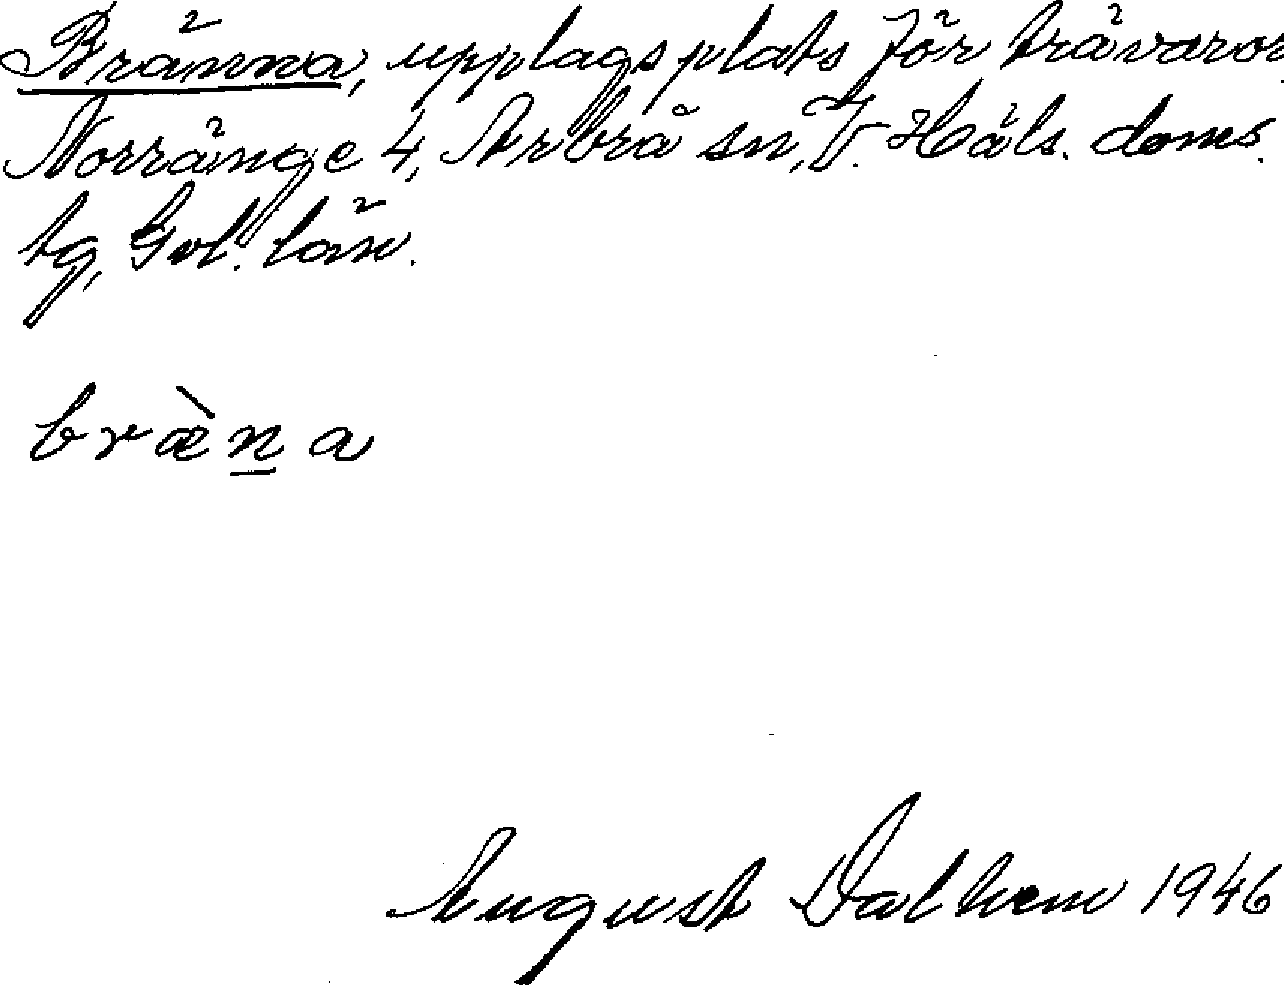 Bränna, upplagsplats för trävaror
Norränge 4, Arbrå sn, V. Häls. doms.
tg, Gvl. län.
bræ̀n̲a
August Dalhem 1946